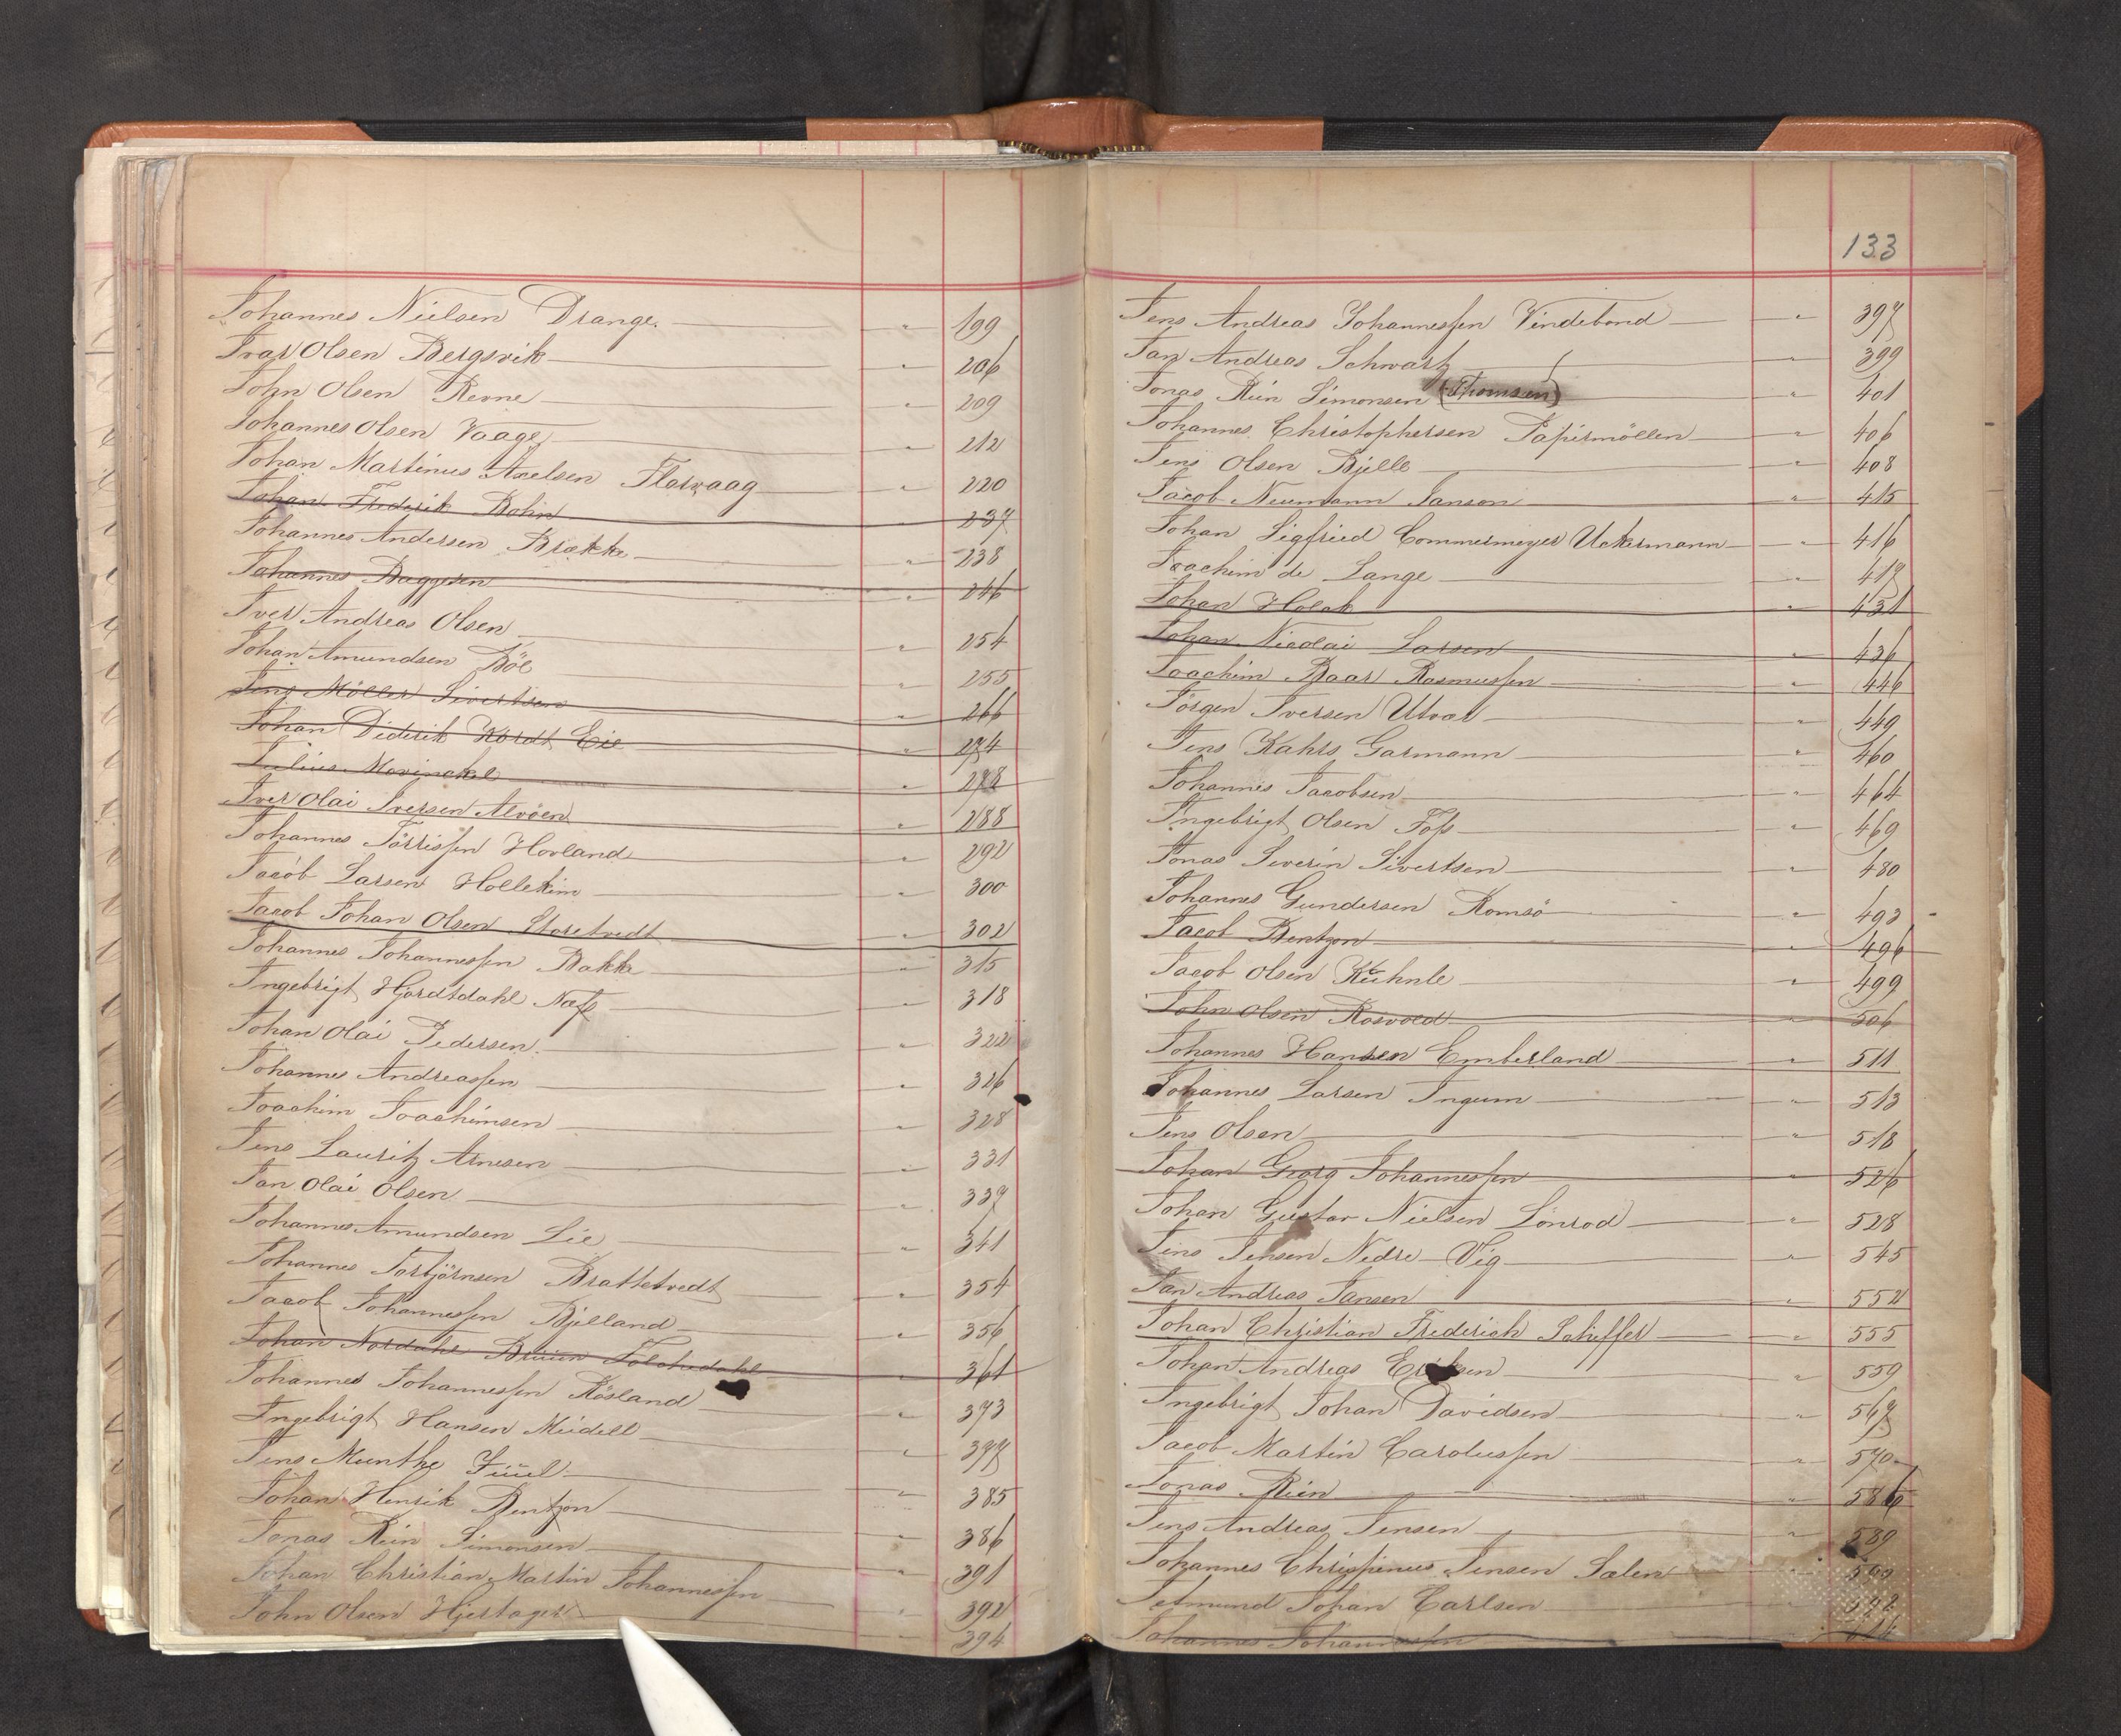 Johannes Nielsen Drange. " 199
Ivar Olsen Bergsvik " 206
John Olsen Revne " 209
Johannes Olsen Vaage " 212
Johan Martinus Axelsen Florvaag " 220
Johan Frederik Bohn " 237
Johannes Andersen Brække " 238
Johannes Baggesen " 246
Iver Andreas Olsen " 254
Johan Amundsen Böe 255
Jens Möller Sivertsen " 266
Johan Diderik Kordt Eie " 274
Julius Mowinckel " 278
Iver Olai Iversen Alvöen " 288
Johannes Törrissen Hovland " 292
Jacob Larsen Hollekim " 300
Jacob Johan Olsen Storetvedt " 302
Johannes Johannessen Bakke " 315
Ingebrigt Hjordtdahl Næss " 318
Johan Olai Pedersen " 322
Johannes Andreassen " 326
Joachim Joachimsen " 328
Jens Lauritz Arnesen " 331
Jan Olai Olsen " 337
Johannes Amundsen Lie " 341
Johannes Torbjörnsen Brattetvedt " 354
Jacob Johannessen Bjelland " 356
Johan Nordahl Brüün " 361
Johannes Johannessen Rösland " 373
Ingebrigt Hansen Meidell " 377
Jens Munthe Jüül " 385
Johan Henrik Bentzon " 386
Jonas Rein Simonsen " 391
Johan Christian Martin Johannessen " 392
John Olsen Hjertager " 394
133
Jens Andreas Johannessen Vindebond " 397
Jan Andreas Schwartz " 399
Jonas Rein Simonsen (Thomsen) " 401
Johannes Christophersen Papirmöllen " 406
Jens Olsen Bjelle " 408
Jacob Neumann Janson " 415
Johan Sigfried Commermeyer Uckermann " 416
Joachim de Lange " 417
Johan Holck " 431
Johan Nicolai Larsen " 436
Joachim Baar Rasmussen " 446
Jörgen Iversen Utvær " 449
Jens Kahrs Garmann " 460
Johannes Jacobsen " 464
Ingebrigt Olsen Foss " 469
Jonas Severin Sivertsen " 480
Johannes Gundersen Romsö " 493
Jacob Bentzon " 496
Jacob Olsen Kühnle " 499
John Olsen Rosvold " 506
Johannes Hansen Emberland " 511
Johannes Larsen Ingum " 513
Jens Olsen " 518
Johan Georg Johannessen " 526
Johan Gustav Nielsen Lönrod " 528
Jens Jensen Nedre-Vig " 545
Jan Andreas Jansen " 552
Johan Christian Frederich Scheffer " 555
Johan Andreas Eriksen " 559
Ingebrigt Johan Davidsen " 567
Jacob Martin Carolussen " 570
Jonas Rein " 586
Jens Andreas Jensen " 589
Johannes Jensen Sælen "
Johan Carlsen
Johannes Johannessen